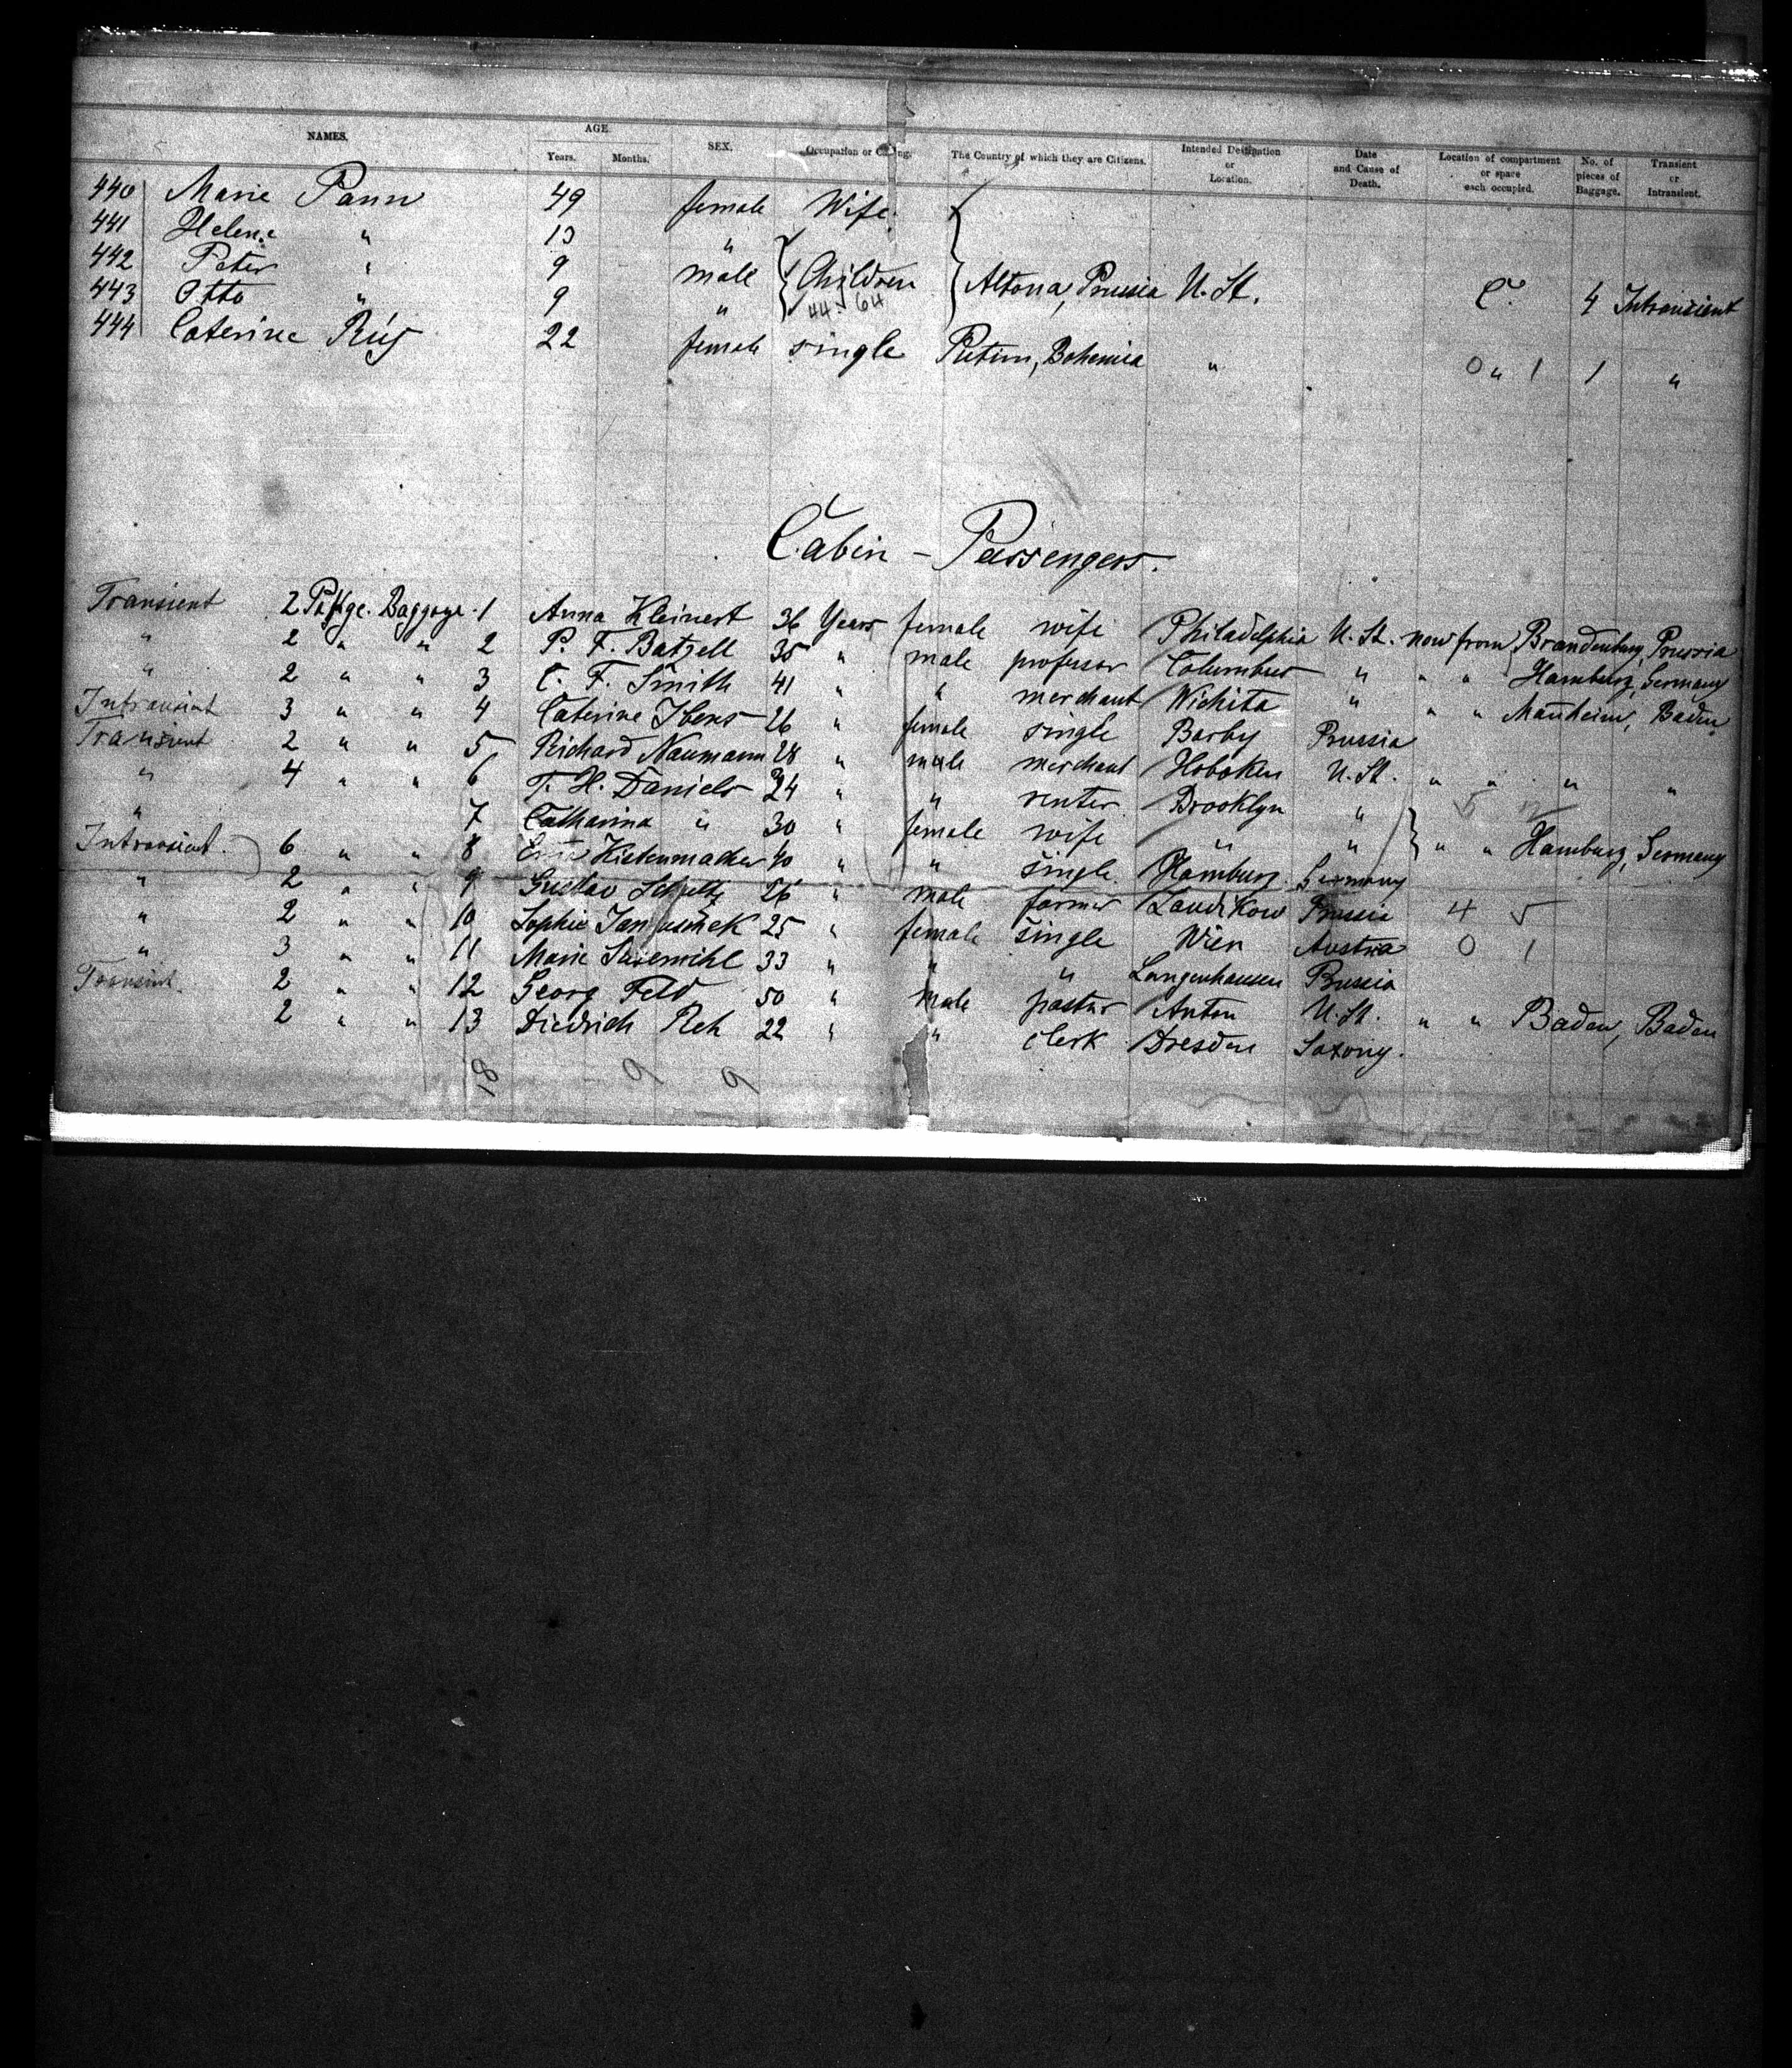 NAMES. AGE. Years. Months. SEX. Occupation or The Country of which they are Citizens. Intended Destination or Location. Date and Cause of Death. Location of compartment or space each occupied. No. of pieces of Baggage. Transient or Intransient.
440 Marie Pann 49 female Wife
441 Helene " 13 "
442 Peter " 9 male Children Altona, Prussia U. St. C. 4 Intransient
443 Otto " 9 " 44. 64
444 Caterine 22 female single Putim, Bohemia " 0 " 1 1 "
Cabin - Passengers.
Transient 2 Baggage. 1 Anna Kleinert 36 Years female wife Philadelphia U. St. now from Brandenburg, Prussia
" 2 " " 2 P. F. Batzell 35 " male professor Columbus " " " Hamburg, Germany
" 2 " " 3 C. F. Smith 41 " " merchant Wichita " " " Manheim, Baden
Intransient 3 " " 4 Caterine Ibens 26 " female single Barby Prussia
Transient 2 " " 5 Richard Naumann 28 " male merchant Hoboken U. St. " " " "
" 4 " " 6 T. H. Daniels 34 " " renter Brooklyn " 5
" 7 Catharina " 30 " female wife " " " " Hamburg, Germany
Intransient. 6 " " 8 40 " " single Hamburg Germany
" 2 " " 9 Gustav Schultz 26 " male farmer Prussia 4 5
" 2 " " 10 Sophie 25 " female single Wien Austria 0 1
" 3 " " 11 Marie 33 " " " Langenhausen Prussia
Transient. 2 " " 12 Georg Feld 50 " male pastor Anton U. St. " " Baden, Baden
2 " " 13 Diedrich Reh 22 " " clerk Dresden Saxony.
18 9 9